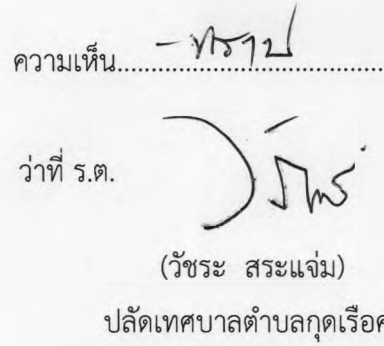 ความเห็น.....- ทราบ.....
ว่าที่ ร.ต.
(วัชระ สระแจ่ม)
ปลัดเทศบาลตำบลกุดเรือ